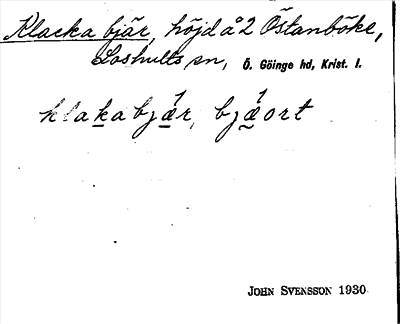 Klacka bjär, höjd å 2 Östanböke,
Loshults sn, Ö. Göinge hd, Krist. l.
klakabjær, bjæort
JOHN SVENSSON 1930